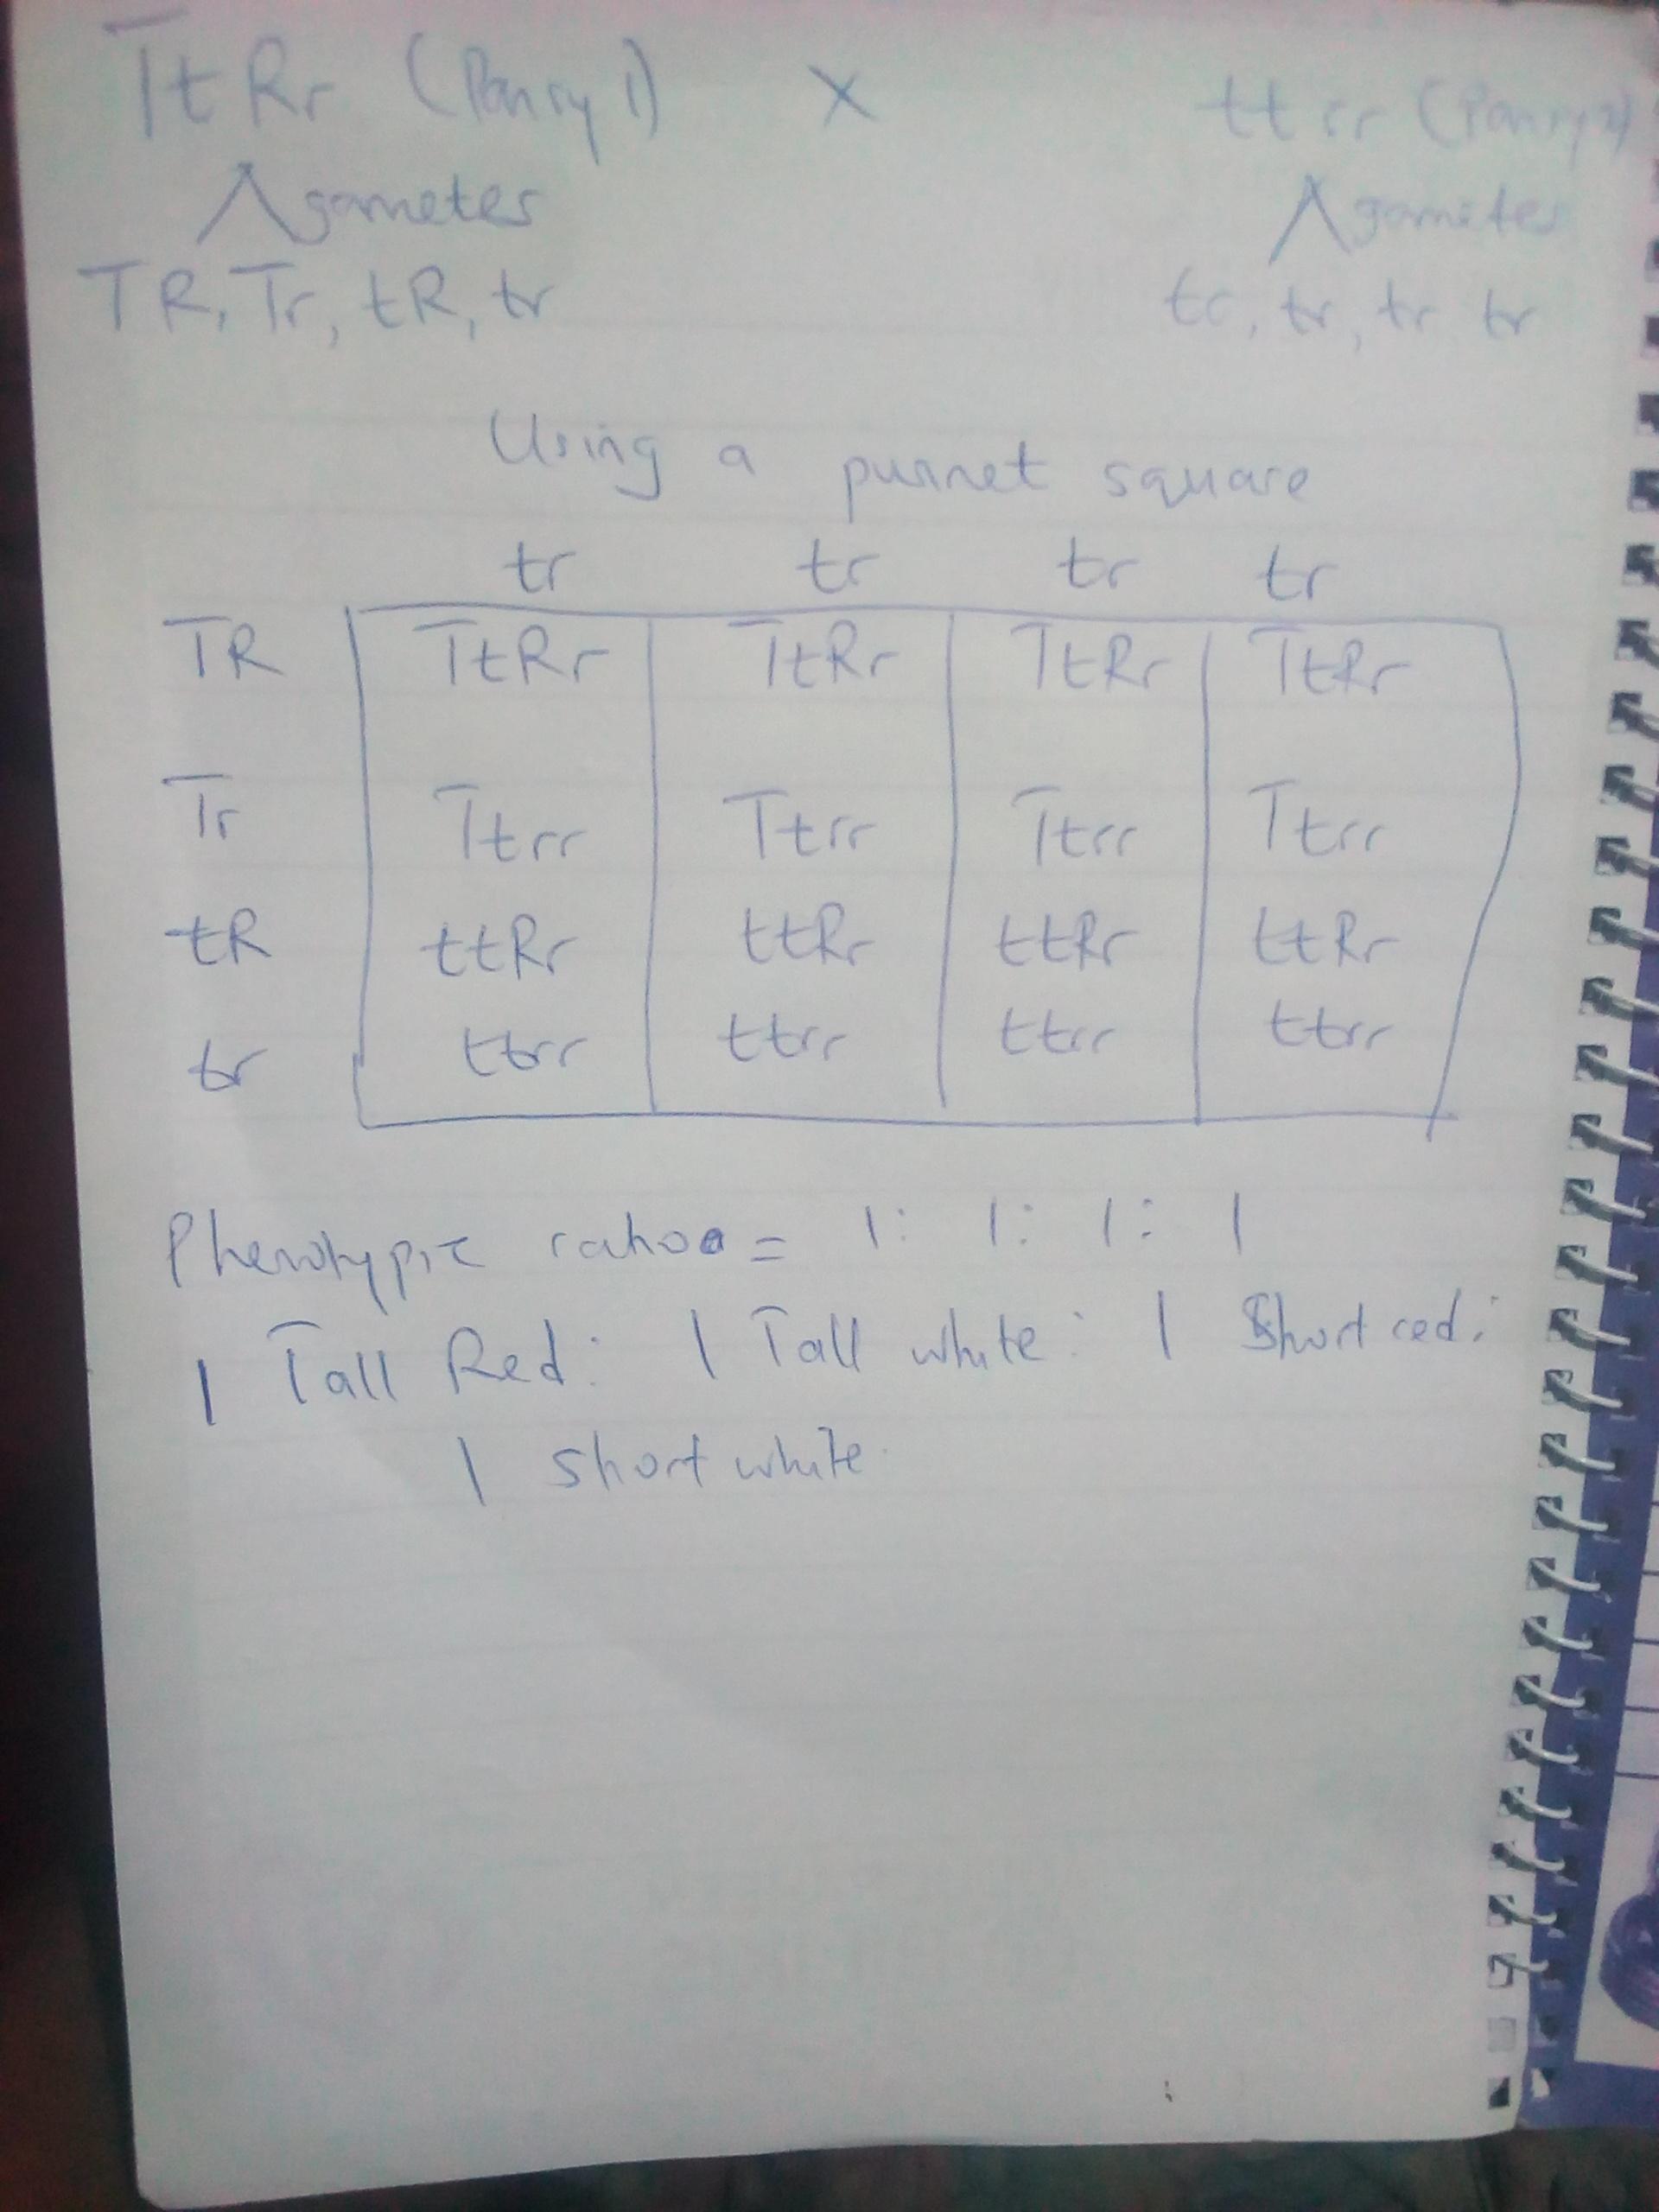 TtRr (Pansy 1) X ttrr (Pansy 2)
gametes gametes
TR, Tr, tR, tr tr, tr, tr tr
Using a punnet square
tr tr tr tr
TR TtRr TtRr TtRr TtRr
Tr Ttrr Ttrr Ttrr Ttrr
tR ttRr ttRr ttRr ttRr
tr ttrr ttrr ttrr ttrr
Phenotypic ratio = 1: 1: 1: 1
1 Tall Red: 1 Tall white: 1 Short red:
1 short white